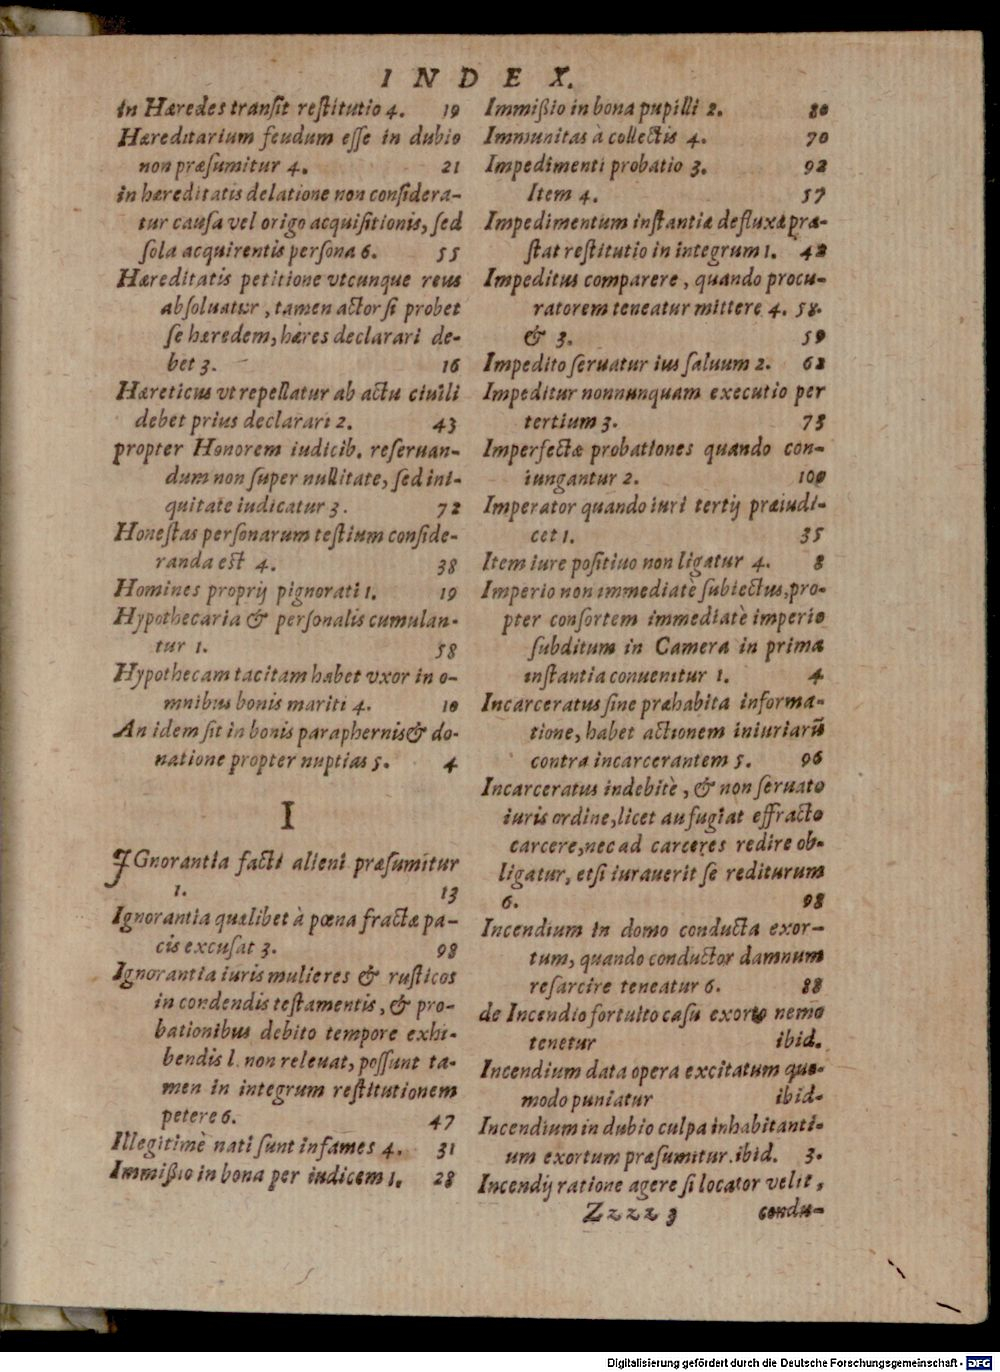 INDEX.
in Hæredes transit restitutio 4. 19
Hæreditarium feudum esse in dubio
non præsumitur 4. 21
in hæreditatis delatione non considera-
tur causa vel origo acquisitionis, sed
sola acquirentis persona 6. 55
Hæreditatis petitione vtcunque reus
absoluatur, tamen actor si probet
se hæredem, hæres declarari de-
bet 3. 16
Hæreticus vt repellatur ab actu ciuili
debet prius declarari 2. 43
propter Honorem iudicib. reseruan-
dum non super nullitate, sed ini-
quitate iudicatur 3. 72
Honestas personarum testium conside-
randa est 4. 38
Homines proprij pignorati 1. 19
Hypothecaria & personalis cumulan-
tur 1. 58
Hypothecam tacitam habet vxor in o-
mnibus bonis mariti 4. 10
An idem sit in bonis paraphernis & do-
natione propter nuptias 5. 4
I
IGnorantia facti alieni præsumitur
1. 13
Ignorantia quælibet à pœna fractæ pa-
cis excusat 3. 98
Ignorantia iuris mulieres & rusticos
in condendis testamentis, & pro-
bationibus debito tempore exhi-
bendis l. non releuat, possunt ta-
men in integrum restitutionem
petere 6. 47
Illegitimè nati sunt infames 4. 31
Immißio in bona per iudicem 1. 28
Immißio in bona pupilli 2. 80
Immunitas à collectis 4. 70
Impedimenti probatio 3. 92
Item 4. 57
Impedimentum instantiæ defluxæ præ-
stat restitutio in integrum 1. 42
Impeditus comparere, quando procu-
ratorem teneatur mittere 4. 58.
& 3. 59
Impedito seruatur ius saluum 2. 62
Impeditur nonnunquam executio per
tertium 3. 73
Imperfectæ probationes quando con-
iungantur 2. 100
Imperator quando iuri tertij præiudi-
cet 1. 35
Item iure positiuo non ligatur 4. 8
Imperio non immediatè subiectus, pro-
pter consortem immediatè imperio
subditum in Camera in prima
instantia conuenitur 1. 4
Incarceratus sine præhabita informa-
tione, habet actionem iniuriarũ
contra incarcerantem 5. 96
Incarceratus indebitè, & non seruato
iuris ordine, licet aufugiat effracto
carcere, nec ad carceres redire ob-
ligatur, etsi iurauerit se rediturum
6. 98
Incendium in domo conducta exor-
tum, quando conductor damnum
resarcire teneatur 6. 88
de Incendio fortuito casu exorto nemo
tenetur ibid.
Incendium data opera excitatum quo-
modo puniatur ibid.
Incendium in dubio culpa inhabitanti-
um exortum præsumitur. ibid. 3.
Incendij ratione agere si locator velit,
Zzzz 3 condu-
Digitalisierung gefördert durch die Deutsche Forschungsgemeinschaft - DFG